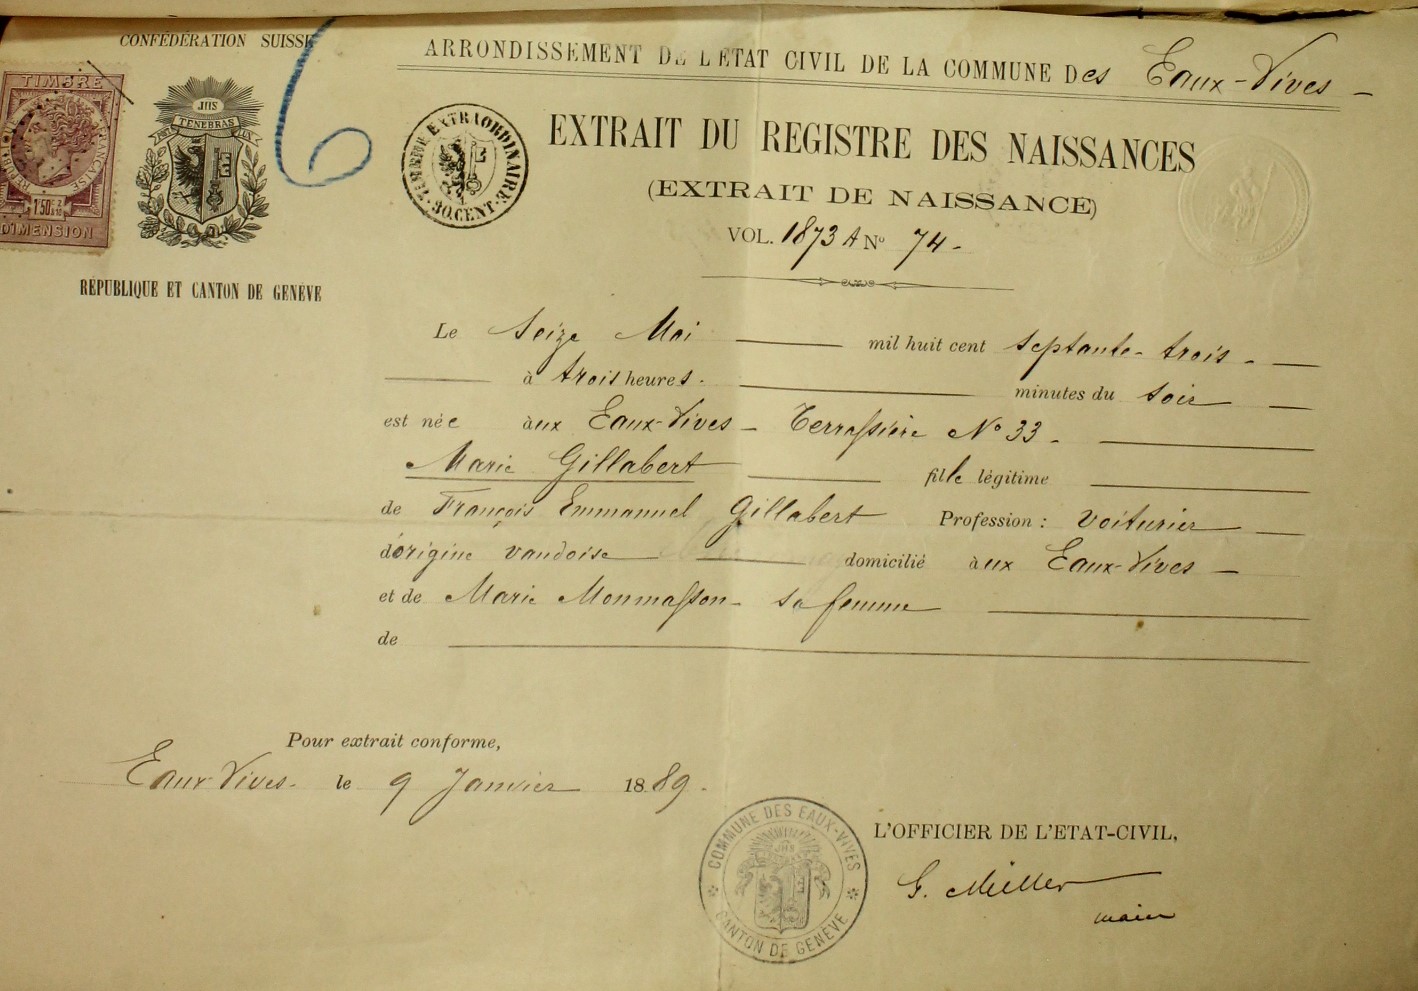 CONFÉDÉRATION SUISSE
6
TIMBRE
RÉPUBLIQUE FRANÇAISE
1F50 2/10
DIMENSION
JHS
POST TENEBRAS LUX
RÉPUBLIQUE ET CANTON DE GENÈVE
ARRONDISSEMENT DE L'ETAT CIVIL DE LA COMMUNE Des Eaux-Vives -
TIMBRE EXTRAORDINAIRE
30. CENT.
EXTRAIT DU REGISTRE DES NAISSANCES
(EXTRAIT DE NAISSANCE)
VOL. 1873 A No 74 -
Le Seize Mai mil huit cent septante-trois -
à trois heures. minutes du soir
est née aux Eaux-Vives - Terrassière No 33 -
Marie Gillabert fille légitime
de François Emmanuel Gillabert Profession : voiturier
d'origine vaudoise domicilié aux Eaux-Vives -
et de Marie Monmasson - sa femme
de
Pour extrait conforme,
Eaux-Vives - le 9 Janvier 1889.
COMMUNE DES EAUX-VIVES
JHS
CANTON DE GENÈVE
L'OFFICIER DE L'ETAT-CIVIL,
G. Müller
maire